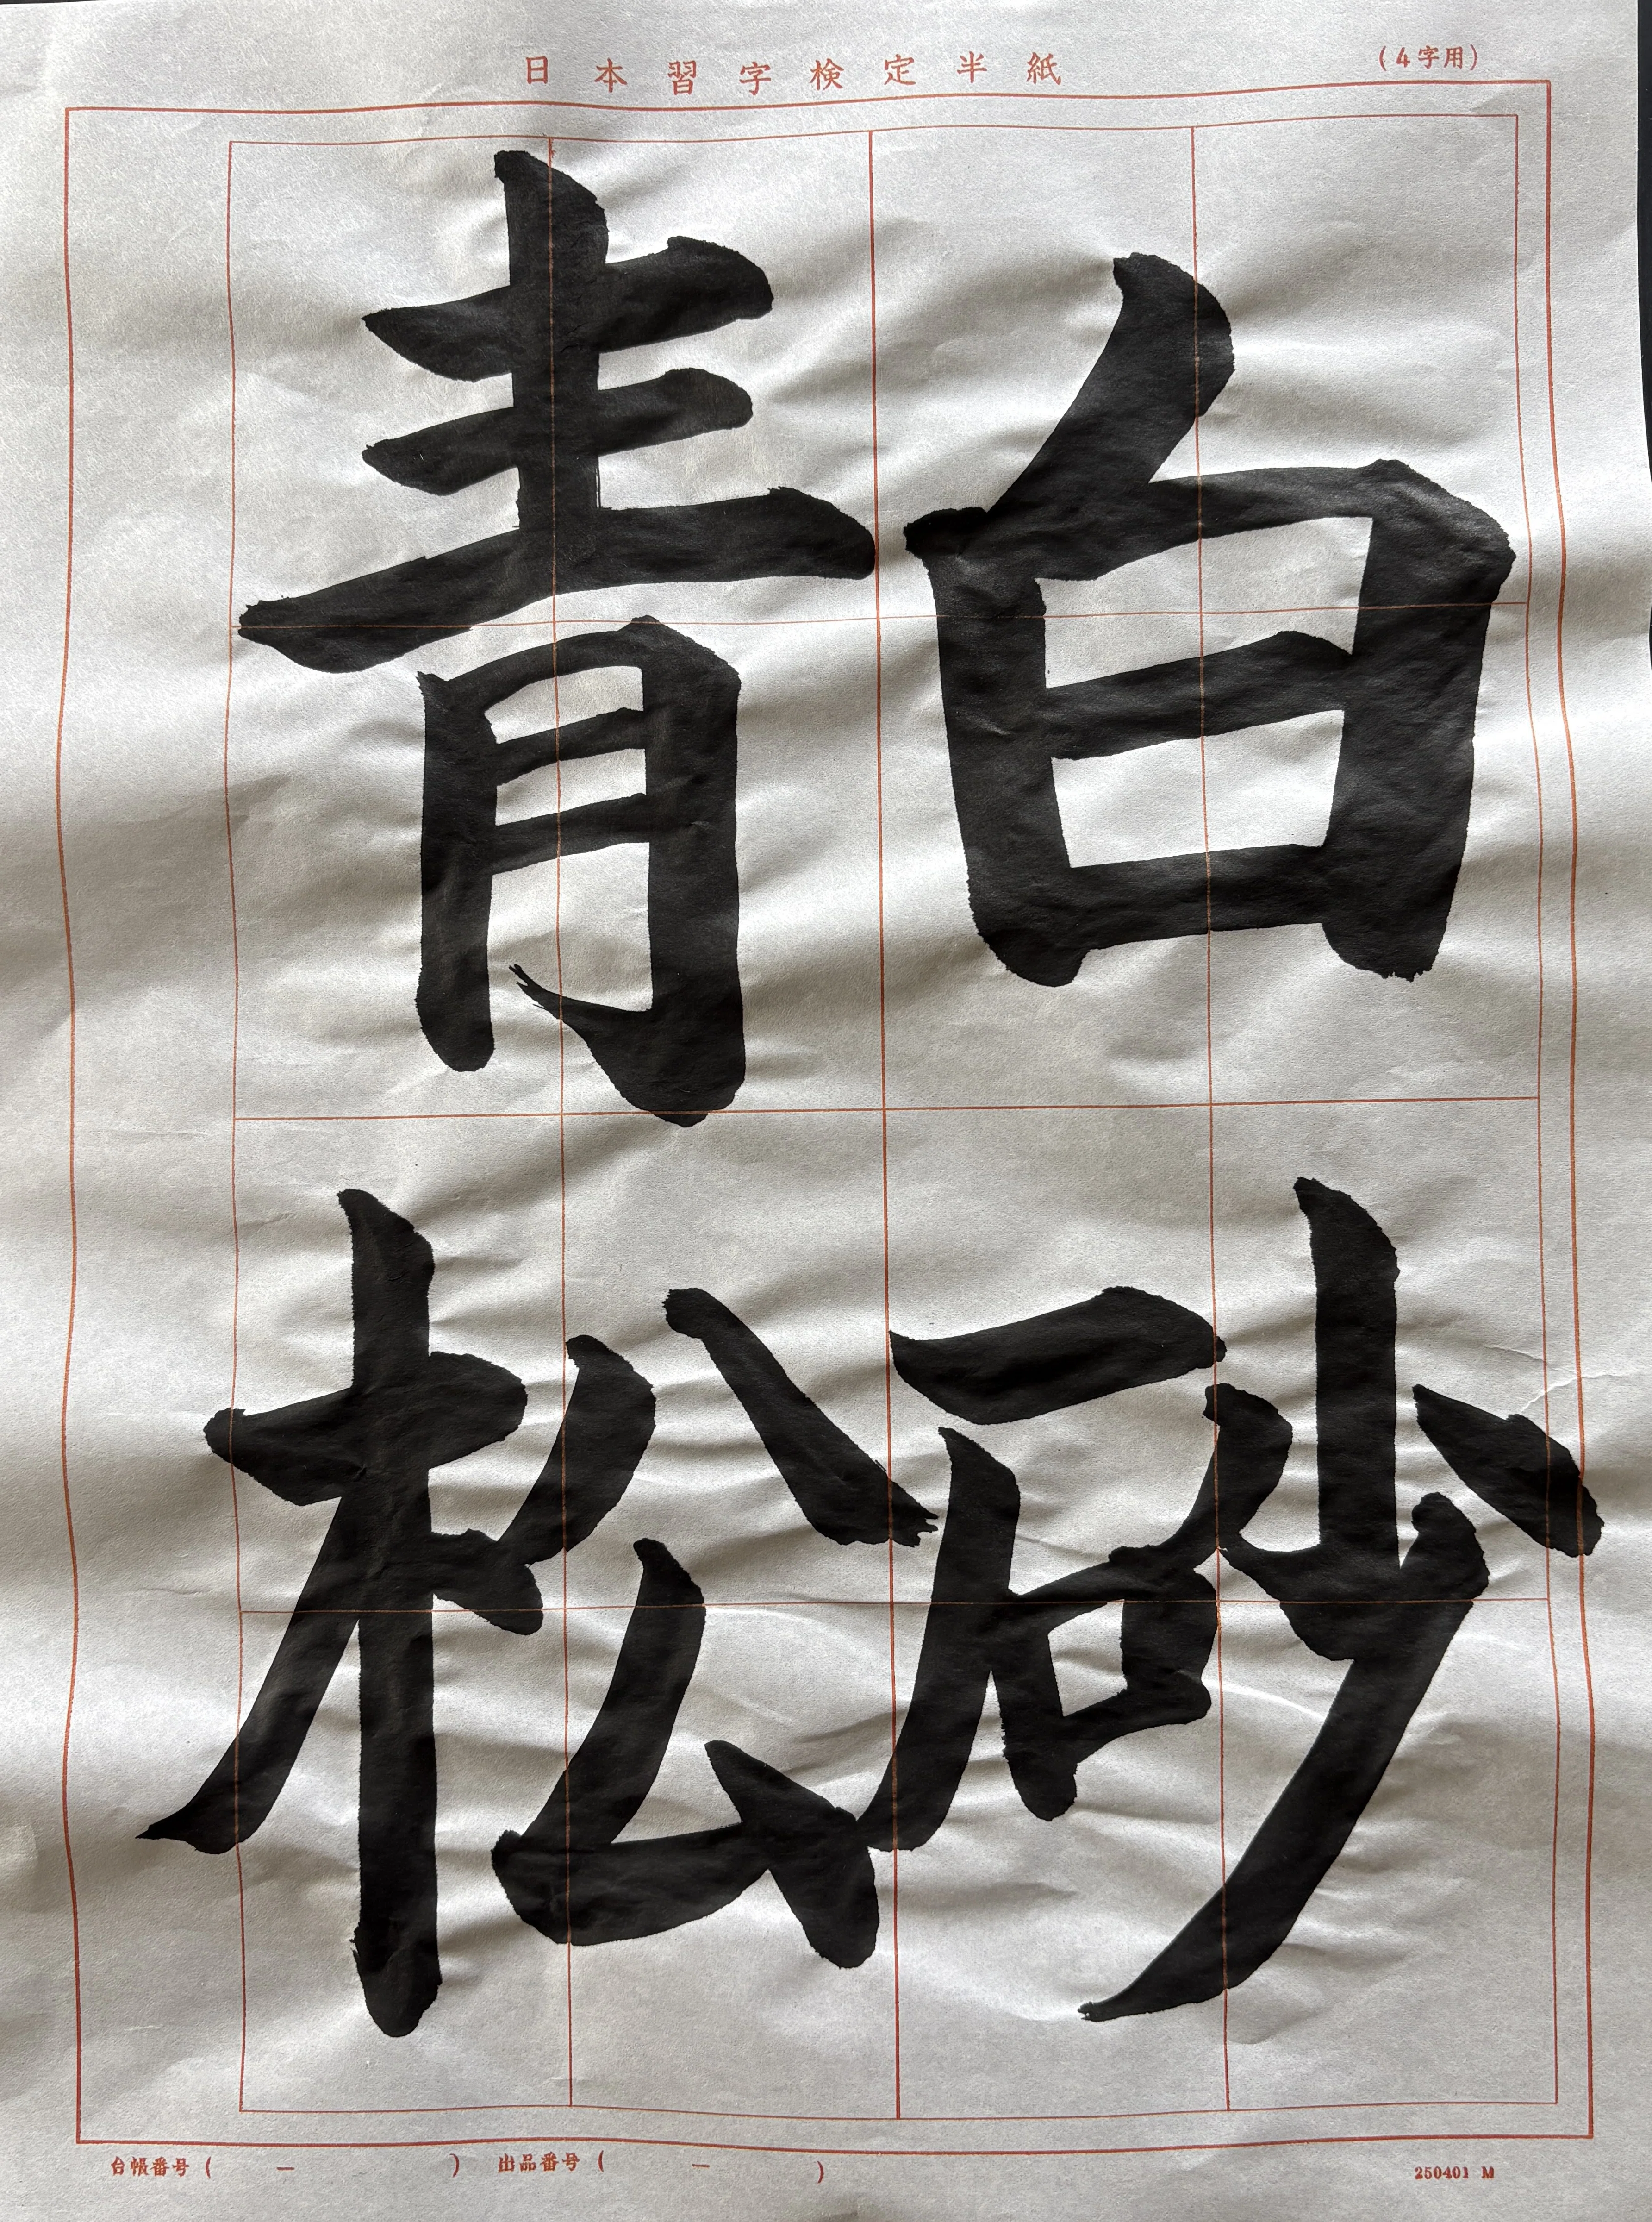 日本習字検定半紙
(4字用)
白砂
青松
台帳番号 ( ー ) 出品番号 ( ー )
250401 M